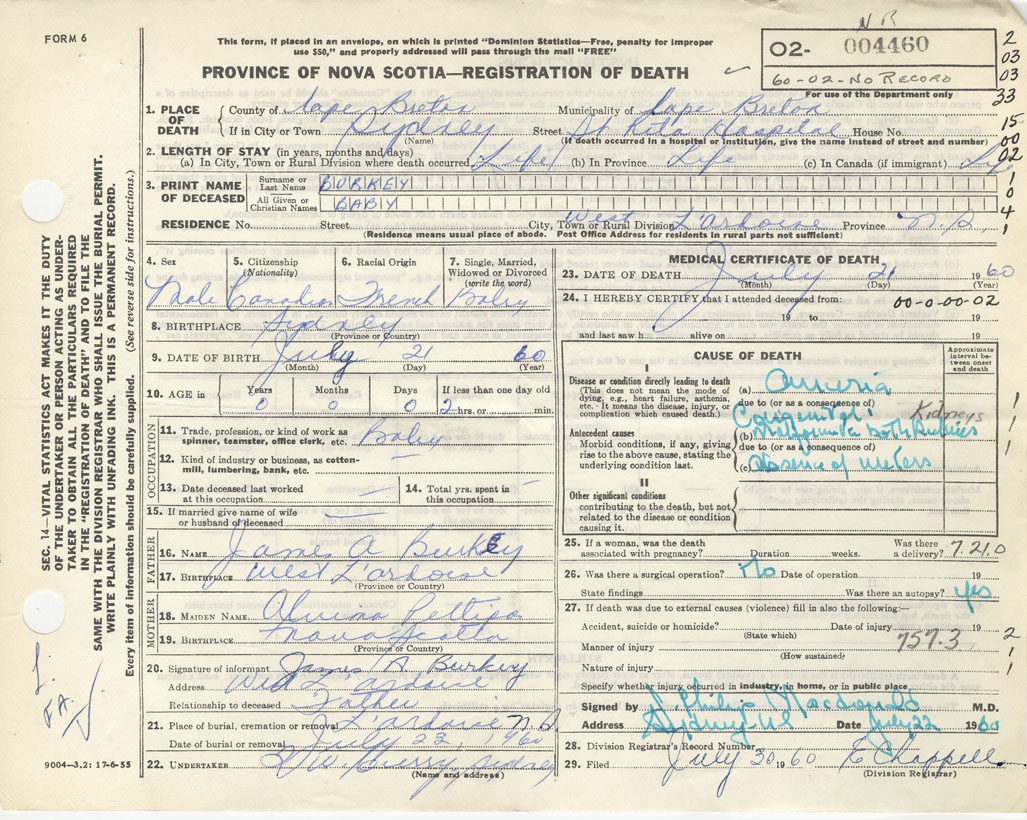 FORM 6
This form, if placed in an envelope, on which is printed "Dominion Statistics—Free, penalty for improper
use $50," and properly addressed will pass through the mail "FREE"
PROVINCE OF NOVA SCOTIA—REGISTRATION OF DEATH
NR
O2- 004460
60-02-NO RECORD
For use of the Department only
2
03
03
33
15
00
02
1
0
4
1
1. PLACE OF DEATH
County of Cape Breton Municipality of Cape Breton
If in City or Town Sydney Street St Rita Hospital House No.
(Name) (If death occurred in a hospital or institution, give the name instead of street and number)
2. LENGTH OF STAY (in years, months and days)
(a) In City, Town or Rural Division where death occurred Life (b) In Province Life (c) In Canada (if immigrant) Life
3. PRINT NAME OF DECEASED
Surname or Last Name BURKEY
All Given or Christian Names BABY
RESIDENCE No. Street City, Town or Rural Division West L'ardoise Province N.S
(Residence means usual place of abode. Post Office Address for residents in rural parts not sufficient)
4. Sex Male
5. Citizenship (Nationality) Canadian
6. Racial Origin French
7. Single, Married, Widowed or Divorced (write the word) Baby
8. BIRTHPLACE Sydney
(Province or Country)
9. DATE OF BIRTH July 21 60
(Month) (Day) (Year)
10. AGE in Years 0 Months 0 Days 0 If less than one day old 2 hrs. or min.
OCCUPATION
11. Trade, profession, or kind of work as spinner, teamster, office clerk, etc. Baby
12. Kind of industry or business, as cotton-mill, lumbering, bank, etc. —
13. Date deceased last worked at this occupation —
14. Total yrs. spent in this occupation —
15. If married give name of wife or husband of deceased —
FATHER
16. NAME James A Burkey
17. BIRTHPLACE West L'ardoise
(Province or Country)
MOTHER
18. MAIDEN NAME
19. BIRTHPLACE Nova Scotia
(Province or Country)
20. Signature of informant James A. Burkey
Address West L'ardoise
Relationship to deceased Father
21. Place of burial, cremation or removal L'ardoise N.S.
Date of burial or removal July 23, 1960
22. UNDERTAKER Sydney
(Name and address)
MEDICAL CERTIFICATE OF DEATH
23. DATE OF DEATH July 21 1960
(Month) (Day) (Year)
24. I HEREBY CERTIFY that I attended deceased from: 00-0-00-02
19 to 19
and last saw h alive on 19
CAUSE OF DEATH
Approximate interval between onset and death
I
Disease or condition directly leading to death
(This does not mean the mode of dying, e.g., heart failure, asthenia, etc. It means the disease, injury, or complication which caused death.)
(a)
due to (or as a consequence of)
Antecedent causes
Morbid conditions, if any, giving rise to the above cause, stating the underlying condition last.
Congenital
Kidneys
(b) both
due to (or as a consequence of)
(c) absence of
II
Other significant conditions
contributing to the death, but not related to the disease or condition causing it.
1
1
25. If a woman, was the death associated with pregnancy? Duration weeks. Was there a delivery? 7.21.0
26. Was there a surgical operation? No Date of operation 19
State findings Was there an autopsy? yes
27. If death was due to external causes (violence) fill in also the following:—
Accident, suicide or homicide? Date of injury 19
(State which)
757.3
Manner of injury
(How sustained)
Nature of injury
2
1
1
Specify whether injury occurred in industry, in home, or in public place
Signed by Philip Macdonald M.D.
Address Sydney NS Date July 22 1960
28. Division Registrar's Record Number
29. Filed July 30 1960 E Chappell
(Division Registrar)
SEC. 14—VITAL STATISTICS ACT MAKES IT THE DUTY
OF THE UNDERTAKER OR PERSON ACTING AS UNDER-
TAKER TO OBTAIN ALL THE PARTICULARS REQUIRED
IN THE "REGISTRATION OF DEATH" AND TO FILE THE
SAME WITH THE DIVISION REGISTRAR WHO SHALL ISSUE THE BURIAL PERMIT.
WRITE PLAINLY WITH UNFADING INK. THIS IS A PERMANENT RECORD.
Every item of information should be carefully supplied. (See reverse side for instructions.)
9004—3,2: 17-6-55